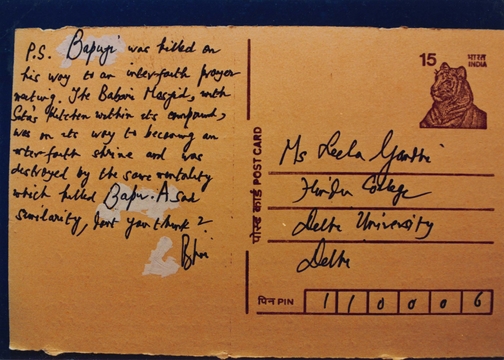 P.S. Bapuji was killed on
his way to an interfaith prayer
meeting. The Babri Masjid, with
Sita's Kitchen within its compound,
was on its way to becoming an
interfaith shrine and was
destroyed by the same mentality
which killed Bapu. A sad
similarity, don't you think?
15 भारत
INDIA
पोस्ट कार्ड POST CARD
Ms Leela Gandhi
Hindu College
Delhi University
Delhi
पिन PIN 110006